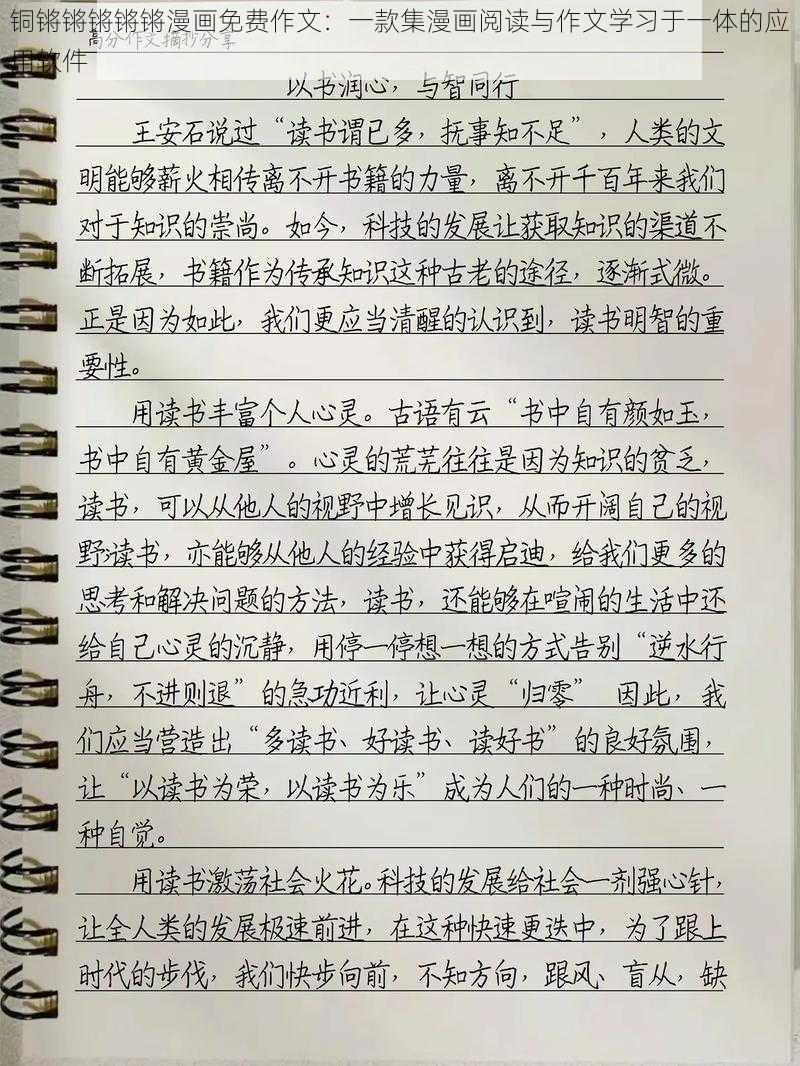 铜锵锵锵锵锵漫画免费作文：一款集漫画阅读与作文学习于一体的应
用软件
高分作文摘抄分享
以书润心，与智同行
王安石说过“读书谓已多，抚事知不足”，人类的文
明能够薪火相传离不开书籍的力量，离不开千百年来我们
对于知识的崇尚。如今，科技的发展让获取知识的渠道不
断拓展，书籍作为传承知识这种古老的途径，逐渐式微。
正是因为如此，我们更应当清醒的认识到，读书明智的重
要性。
用读书丰富个人心灵。古语有云“书中自有颜如玉，
书中自有黄金屋”。心灵的荒芜往往是因为知识的贫乏，
读书，可以从他人的视野中增长见识，从而开阔自己的视
野；读书，亦能够从他人的经验中获得启迪，给我们更多的
思考和解决问题的方法，读书，还能够在喧闹的生活中还
给自己心灵的沉静，用停一停想一想的方式告别“逆水行
舟，不进则退”的急功近利，让心灵“归零” 因此，我
们应当营造出“多读书、好读书、读好书”的良好氛围，
让“以读书为荣，以读书为乐”成为人们的一种时尚、一
种自觉。
用读书激荡社会火花。科技的发展给社会一剂强心针，
让全人类的发展极速前进，在这种快速更迭中，为了跟上
时代的步伐，我们快步向前，不知方向，跟风、盲从，缺